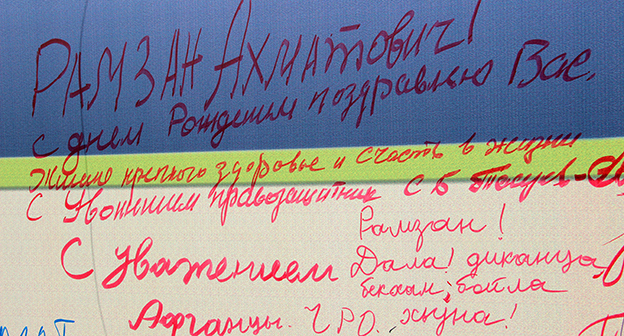 РАМЗАН АХМАТОВИЧ!
С днем Рождением поздравляю Вас,
Желаю крепкого здоровье и счасть в жизни
С Уважением правозащитник С Б
Рамзан!
С Уважением Дала! диканца
бекаом; бойла
Афганцы. Ч.Р.О. жуна!